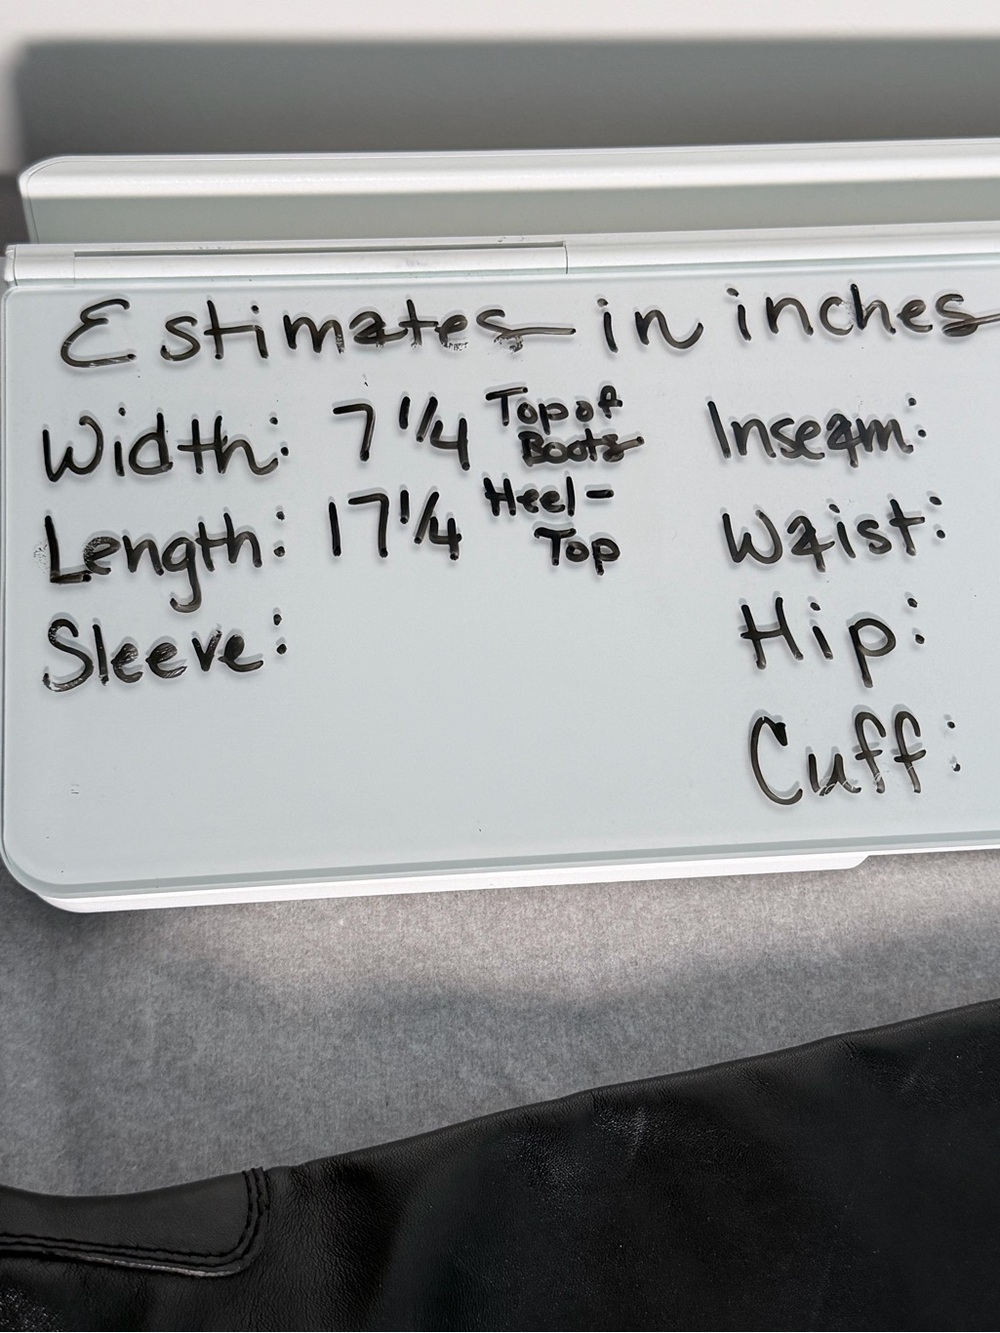 Estimates in inches
Width: 7 1/4 Top of Boots
Length: 17 1/4 Heel - Top
Sleeve:
Inseam:
Waist:
Hip:
Cuff: